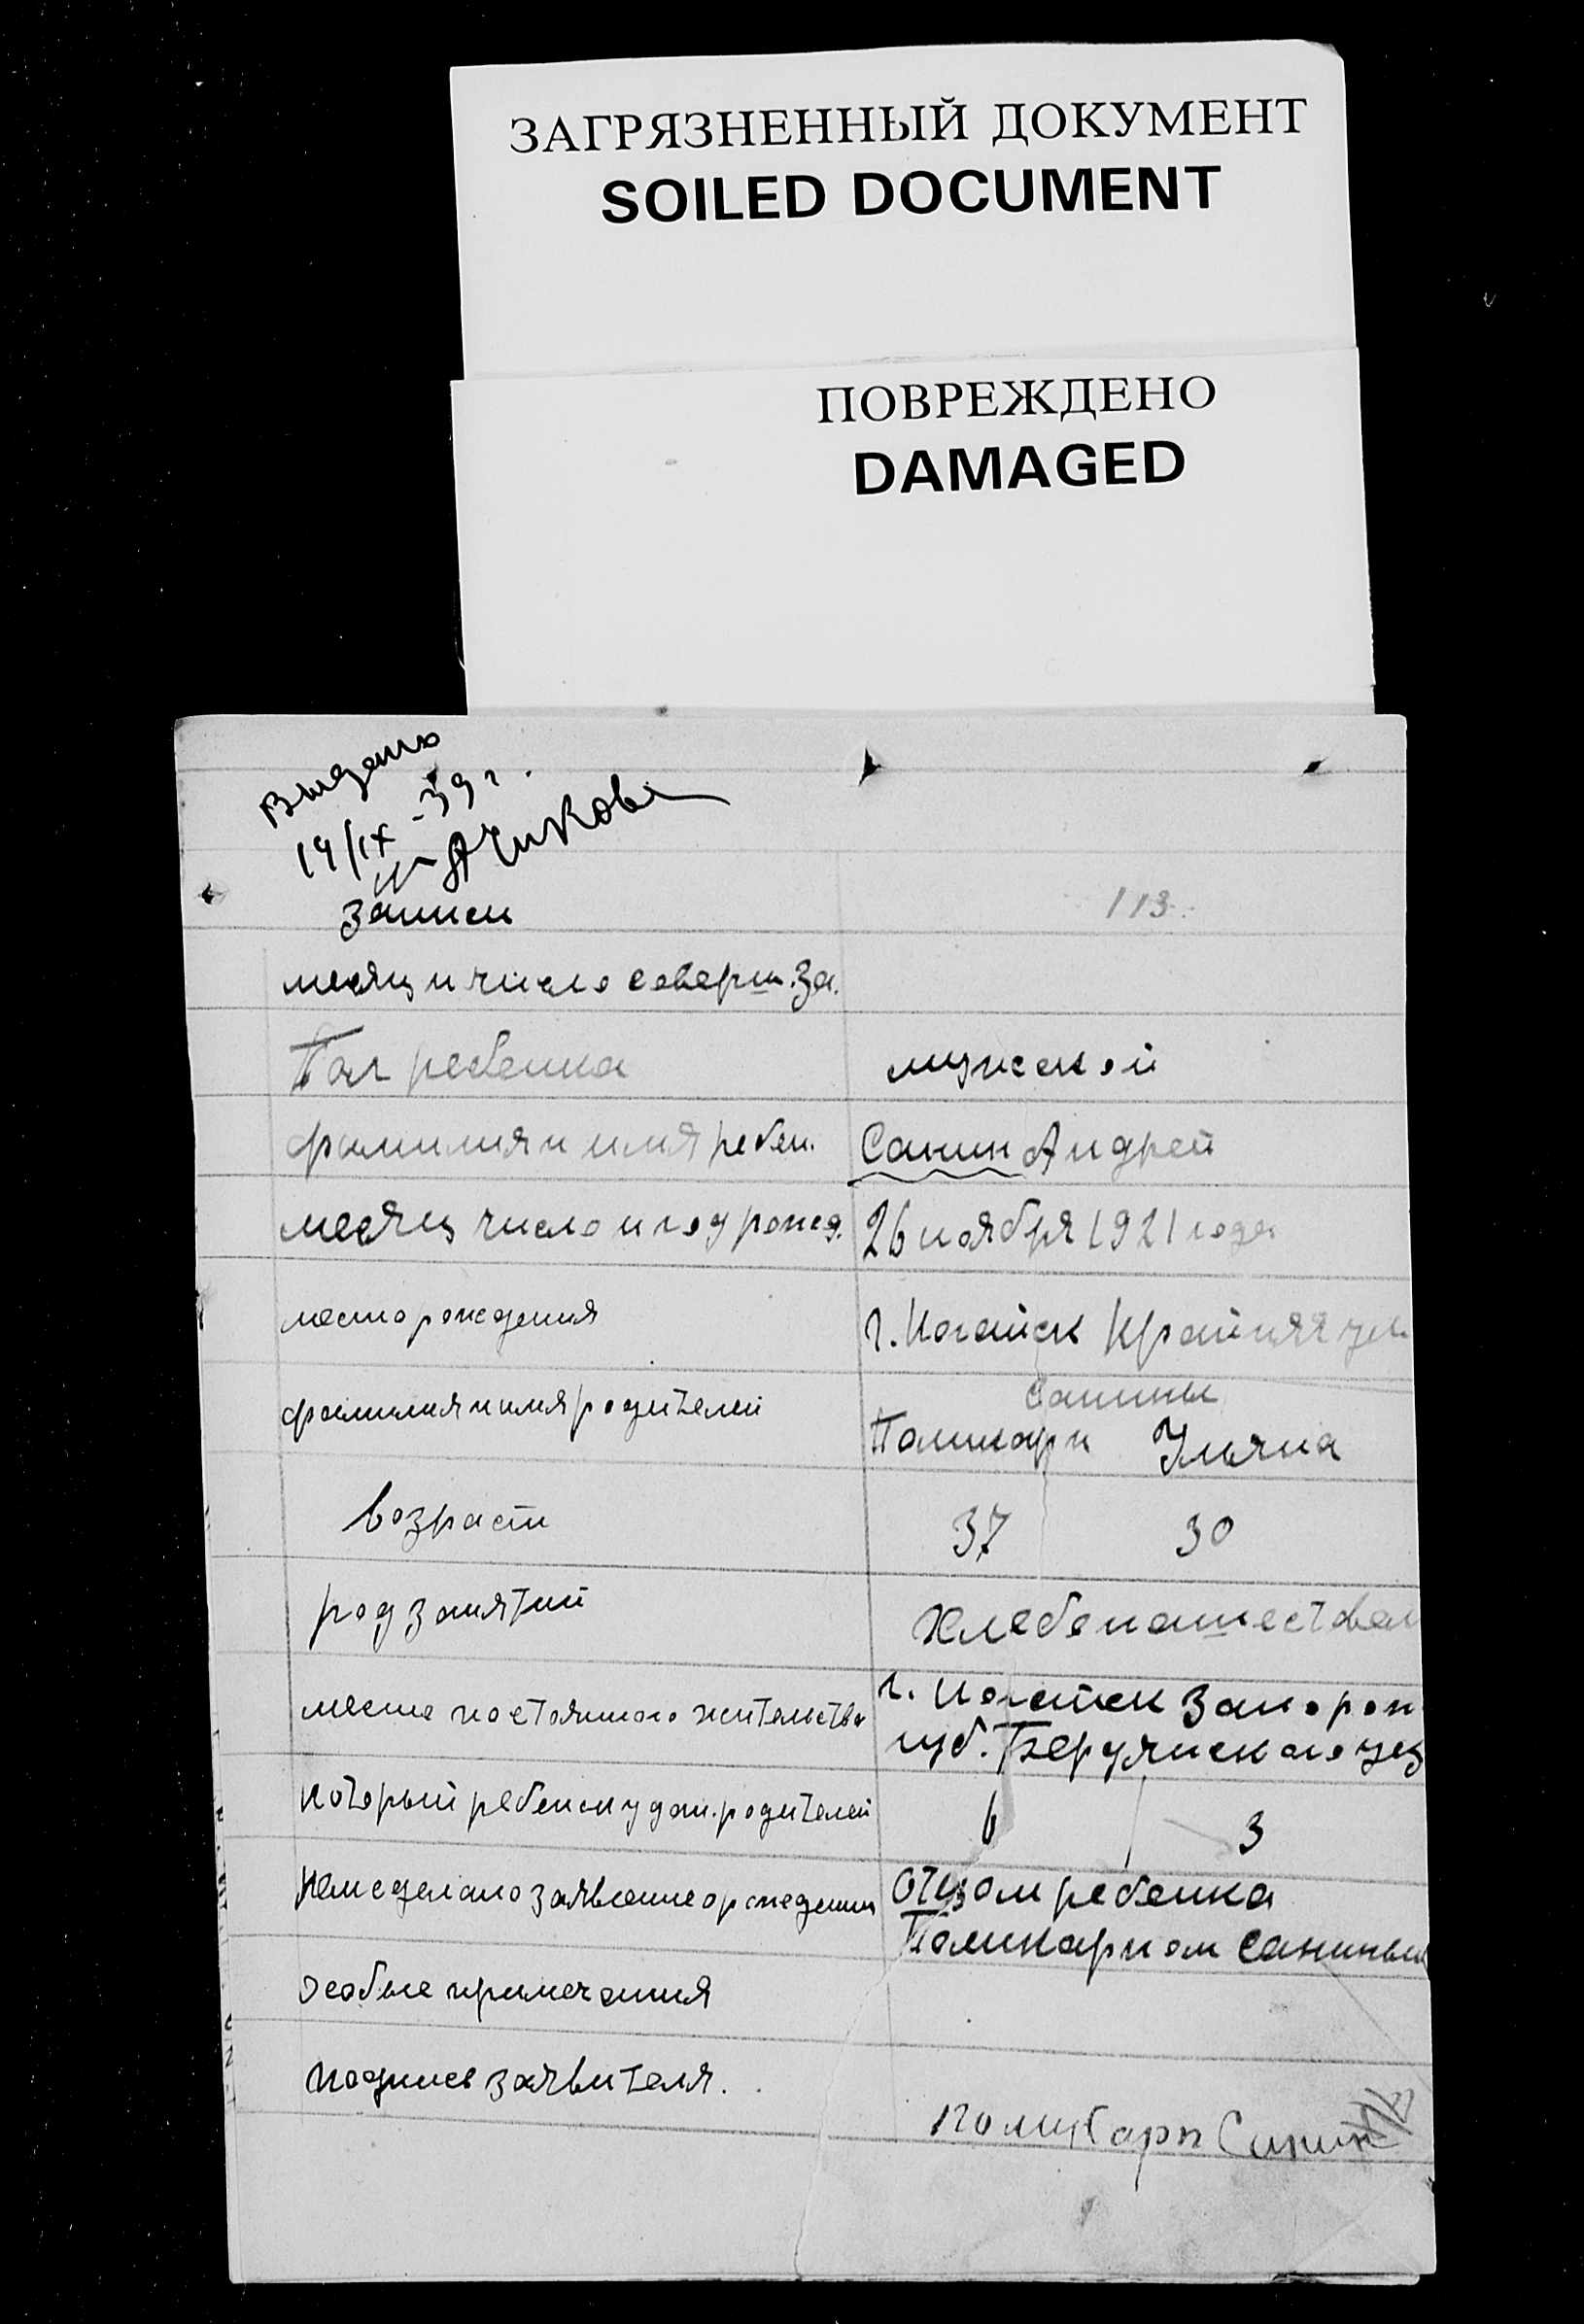 ЗАГРЯЗНЕННЫЙ ДОКУМЕНТ
SOILED DOCUMENT
ПОВРЕЖДЕНО
DAMAGED
Выдано
14/IX - 39 г.
Записи
113
месяц и число соверш. за.
Пол ребенка мужской
фамилия и имя ребен. Санин Андрей
месяц число и год рожд. 26 ноября 1921 года
место рождения г. Ногайск Крайняя ул.
Санины
фамилия и имя родителей Поликарп Ульяна
возраст 37 30
род занятий Хлебопашество
г. Ногайск Запорож
место постоянного жительства губ. Бердянского уез
который ребенок у дан. родителей 6 3
Кем сделано заявление о рождении Отцом ребенка
Поликарпом Саниным
особые примечания
подпись заявителя.
Поликарп Санин